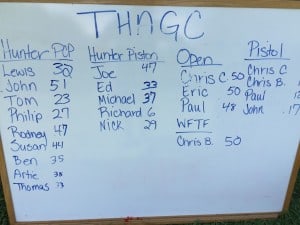 THNGC
Hunter PCP
Lewis 32
John 51
Tom 23
Philip 27
Rodney 47
Susan 44
Ben 35
Artie 38
Thomas
Hunter Piston
Joe 47
Ed 33
Michael 37
Richard 6
Nick 29
Open
Chris C 50
Eric 50
Paul 48
WFTF
Chris B. 50
Pistol
Chris C
Chris B.
Paul
John .17